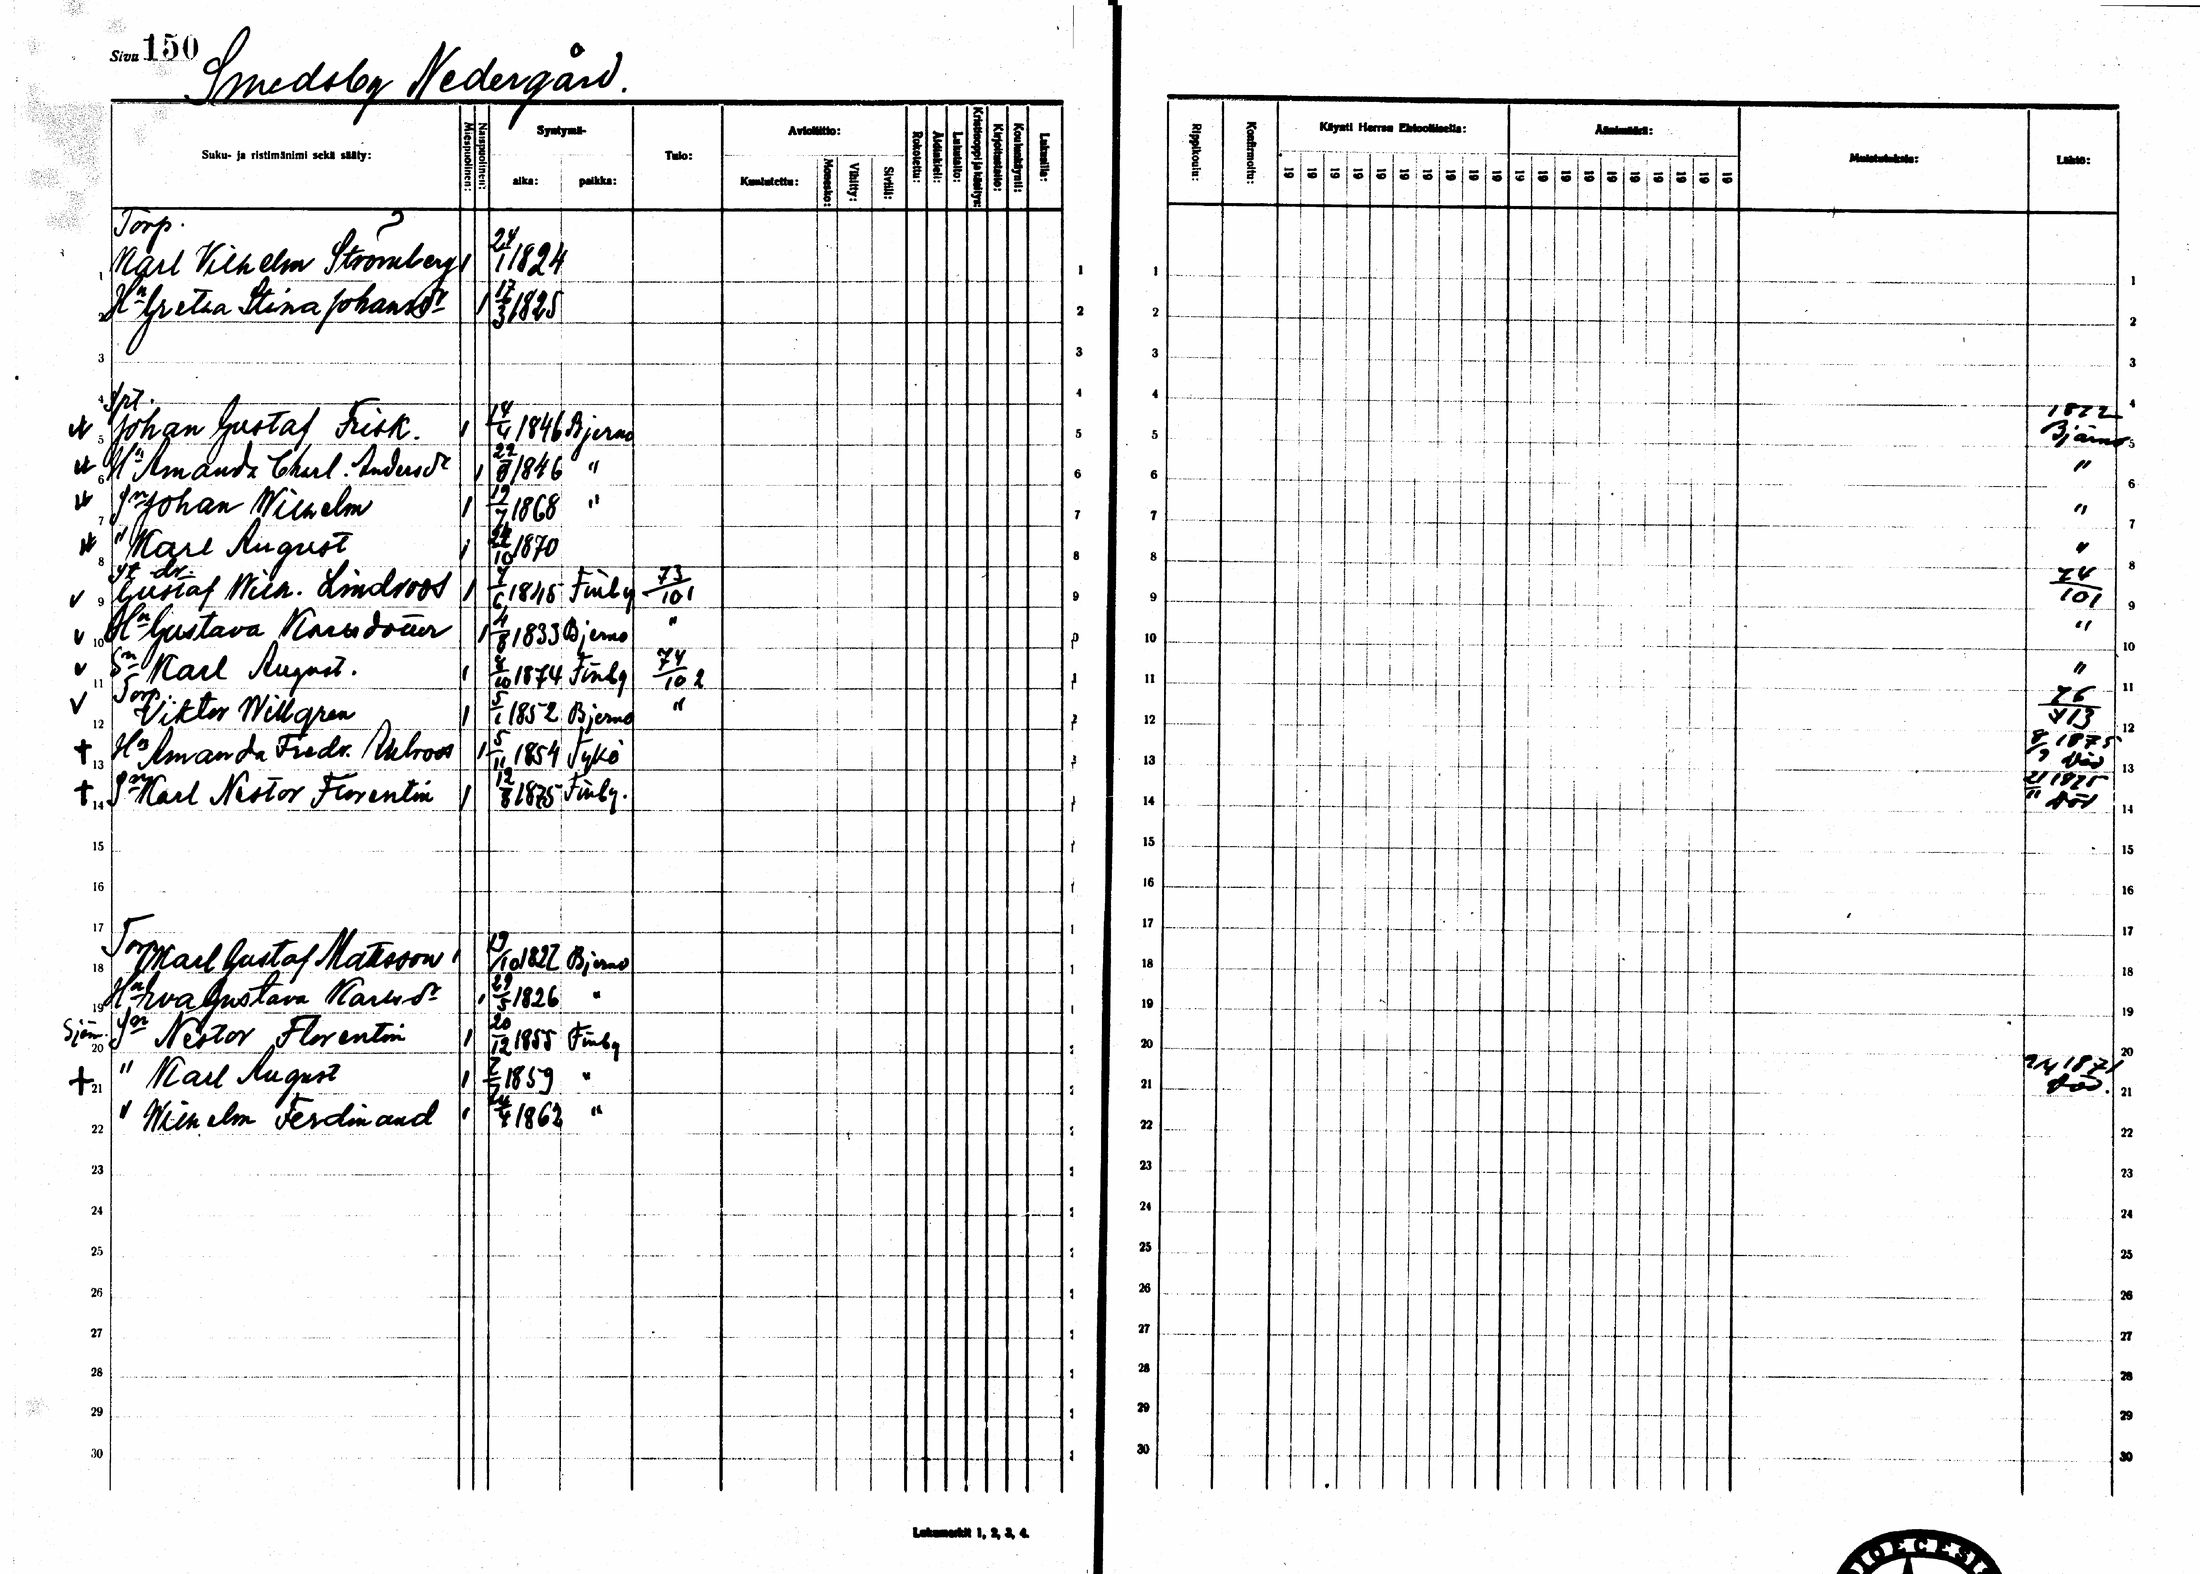 Sivu 150
Smedsby Nedergård.
Suku- ja ristimänimi sekä sääty: Miespuolinen: Naispuolinen: Syntymä- aika: paikka: Tulo: Avioliitto: Kuulutettu: Vihitty: Siviili: Rokotettu: Äidinkieli: Lukutaito: Kristinoppi ja käsitys: Kirjoitustaito: Koulunkäynti: Lukusilla: Rippikoulu: Konfirmoitu: Käynti Herran Ehtoollisella: 19 19 19 19 19 19 19 19 19 19 Äänimäärä: 19 19 19 19 19 19 19 19 19 19 Muistutuksia: Lähtö:
Torp. ?
1 Karl Vilhelm Strömberg 1 24/1 1824
2 Hn Greta Stina Johansdr 1 17/3 1825
3
4 Spt. 
5 Johan Gustaf Frisk. 1 14/4 1846 Bjerno 1872 Bjärno
6 Hn Amanda Charl. Andersdr 1 22/8 1846 " "
7 Sn Johan Wilhelm 1 19/7 1868 " "
8 " Karl August 1 24/10 1870 "
St dr.
9 Gustaf Wilh. Lindroos 1 7/6 1845 Finby 73/101 74/101
10 Hn Gustava Karlsdotter 1 4/8 1833 Bjerno " "
11 Sn Karl August. 1 4/10 1874 Finby 74/102 "
Torp.
12 Viktor Willgren 1 5/1 1852 Bjerno " 76/113
13 † Hn Amanda Fredr. 1 5/11 1854 Tykö 8/9 1875 död
14 † Sn Karl Nestor Florentin 1 12/8 1875 Finby. 21/11 1875 död
15
16
17 Torp
18 Karl Gustaf Mattsson 1 19/10 1822 Bjerno
19 Hn Eva Gustava Karlsdr 1 29/5 1826 "
20 Sjöm. Sn Nestor Florentin 1 20/12 1855 Finby
21 † " Karl August 1 2/7 1859 " 1871 död.
22 " Wilhelm Ferdinand 1 24/4 1862 "
23
24
25
26
27
28
29
30
Lukumerkit 1, 2, 3, 4.
DIOECESIS